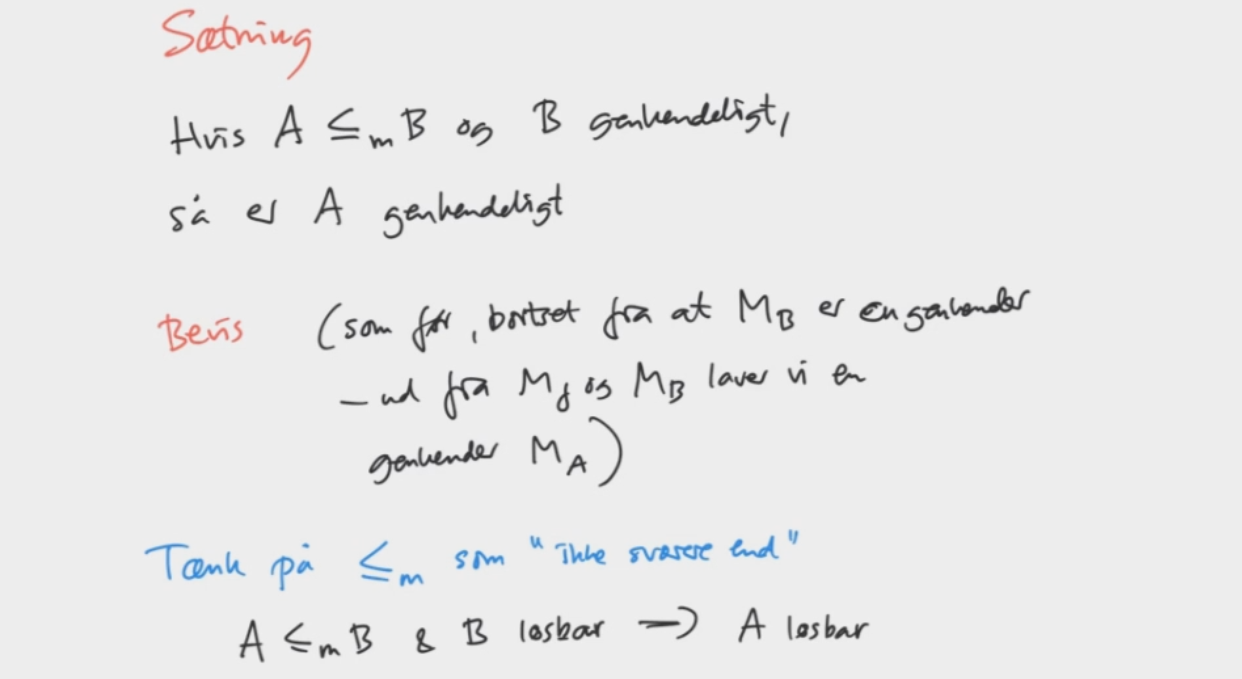 Sætning
Hvis A ≤m B og B genkendeligt,
så er A genkendeligt
Bevis (som før, bortset fra at MB er en genkender
– ud fra Mf og MB laver vi en
genkender MA)
Tænk på ≤m som "ikke sværere end"
A ≤m B & B løsbar → A løsbar